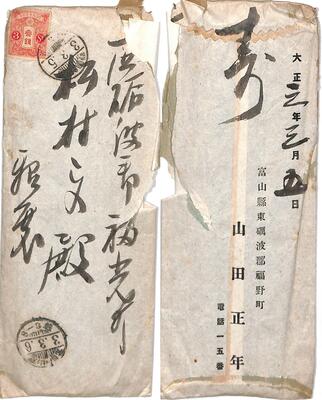 西砺波郡福光町
松村
殿
親展
3
3.3.5
3.3.6
壽
大正三年三月五日
富山縣東礪波郡福野町
山田正年
電話一五番